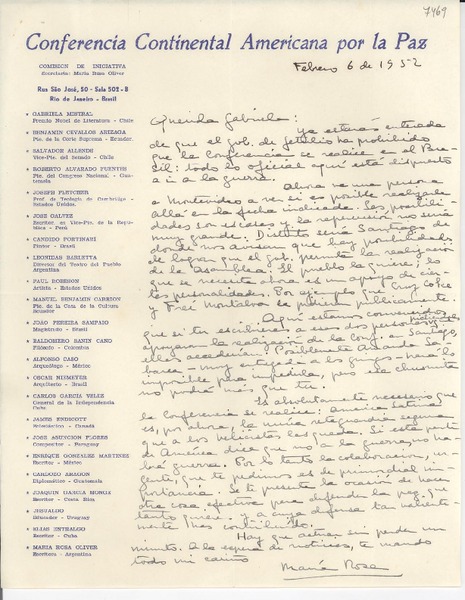 7469
Conferencia Continental Americana por la Paz
COMISION DE INICIATIVA
Secretaria: María Rosa Oliver
Rua São José, 50 - Sala 502 - B
Rio de Janeiro - Brasil
Febrero 6 de 1952
GABRIELA MISTRAL
Premio Nobel de Literatura - Chile
BENJAMIN CEVALLOS ARIZAGA
Pte. de la Corte Suprema - Ecuador
SALVADOR ALLENDE
Vice-Pte. del Senado - Chile
ROBERTO ALVARADO FUENTES
Pte. del Congreso Nacional - Guatemala
JOSEPH FLETCHER
Prof. de Teología de Cambridge - Estados Unidos
JOSE GALVEZ
Escritor, ex Vice-Pte. de la República - Perú
CANDIDO PORTINARI
Pintor - Brasil
LEONIDAS BARLETTA
Director del Teatro del Pueblo Argentina
PAUL ROBESON
Artista - Estados Unidos
MANUEL BENJAMIN CARRION
Pte. de la Casa de la Cultura Ecuador
JOAO PEREIRA SAMPAIO
Magistrado - Brasil
BALDOMERO SANIN CANO
Filósofo - Colombia
ALFONSO CASO
Arqueólogo - México
OSCAR NIEMEYER
Arquitecto - Brasil
CARLOS GARCIA VELEZ
General de la Independencia Cuba
JAMES ENDICOTT
Canadá
JOSE ASUNCION FLORES
Compositor - Paraguay
ENRIQUE GONZALEZ MARTINEZ
Escritor - México
CARDOZO ARAGON
Diplomático - Guatemala
JOAQUIN GARCIA MONGE
Escritor - Costa Rica
JESUALDO
Educador - Uruguay
ELIAS ENTRALGO
Escritor - Cuba
MARIA ROSA OLIVER
Escritora - Argentina
Querida Gabriela:
Ya estarás enterada
de que el gob. de Getulio ha prohibido
que la Conferencia se realice en el Brasil: todo lo oficial aquí está dispuesto
a ir a la guerra.
Ahora va una persona
a Montevideo a ver si es posible realizarla
allá en la fecha indicada. Las posibilidades son escasas y la repercusión no sería
muy grande. Distinto sería Santiago de
donde nos avisan que hay posibilidades
de lograr que el gob. permita la realización
de la Asamblea. El pueblo la quiere, lo
que se necesita ahora es un apoyo de ciertas personalidades. Por ejemplo que Cruz Coke
y Frei Montalva la publicamente.
Aquí estamos convencidos
que si tú escribieras a esas dos personas
apoyaran la realización de la Conf. en Santiago,
ellos accederían. Posiblemente
muy a los gringos - hará lo
imposible para impedirla, pero ella
no podrá más que tú.
Es absolutamente necesario que
la Conferencia se realice: América Latina
es, por ahora, la única retaguardia segura
que a los belicistas les queda. Si esta parte
de América dice que no a la guerra, no habrá guerra. Por lo tanto la colaboración, urgente, que te pedimos es de primordial importancia. Se te presenta la ocasión de hacer
otra cosa efectiva para defender la paz que
tanto quieres y a cuya defensa tan valientemente has contribuido.
Hay que actuar sin perder un
minuto. A la espera de noticias, te mando
todo mi cariño
María Rosa